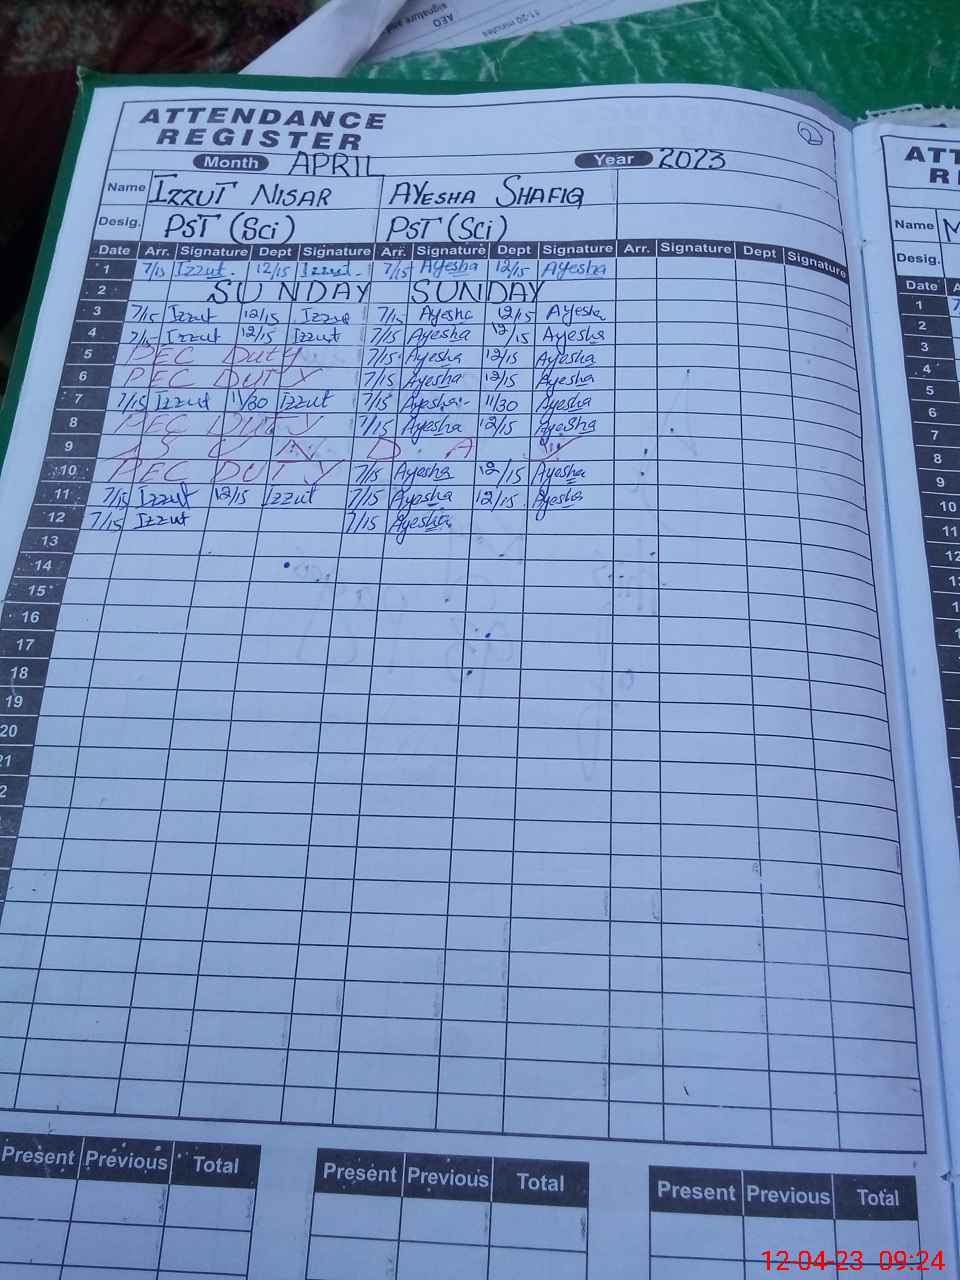 AEO
signature and
11:20 minutes
ATTENDANCE
REGISTER
2
Month APRIL Year 2023
Name IZZUT NISAR AYESHA SHAFIQ
Desig. PST (Sci) PST (Sci)
Date Arr. Signature Dept Signature Arr. Signature Dept Signature Arr. Signature Dept Signature
1 7/15 Izzut. 12/15 Izzut. 7/15 Ayesha 12/15 Ayesha
2 SUNDAY SUNDAY
3 7/15 Izzut 12/15 Izzut 7/15 Ayesha 12/15 Ayesha
4 7/15 Izzut 12/15 Izzut 7/15 Ayesha 12/15 Ayesha
5 PEC Duty 7/15 Ayesha 12/15 Ayesha
6 PEC DUTY 7/15 Ayesha 12/15 Ayesha
7 7/15 Izzut 11/30 Izzut 7/15 Ayesha 11/30 Ayesha
8 PEC DUTY 7/15 Ayesha 12/15 Ayesha
9 S U N D A Y
10 PEC DUTY 7/15 Ayesha 12/15 Ayesha
11 7/15 Izzut 12/15 Izzut 7/15 Ayesha 12/15 Ayesha
12 7/15 Izzut 7/15 Ayesha
13
14
15
16
17
18
19
20
21
2
Present Previous Total Present Previous Total Present Previous Total
ATT
R
Name M
Desig.
Date A
1 7
2
3
4
5
6
7
8
9
10
11
12
13
1
1
12-04-23 09:24